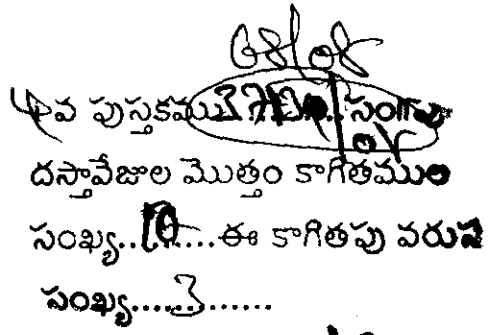 68/08
4వ పుస్తకము 37 సంగపు
దస్తావేజుల మొత్తం కాగితముల
సంఖ్య..10....ఈ కాగితపు వరుస
సంఖ్య......3......